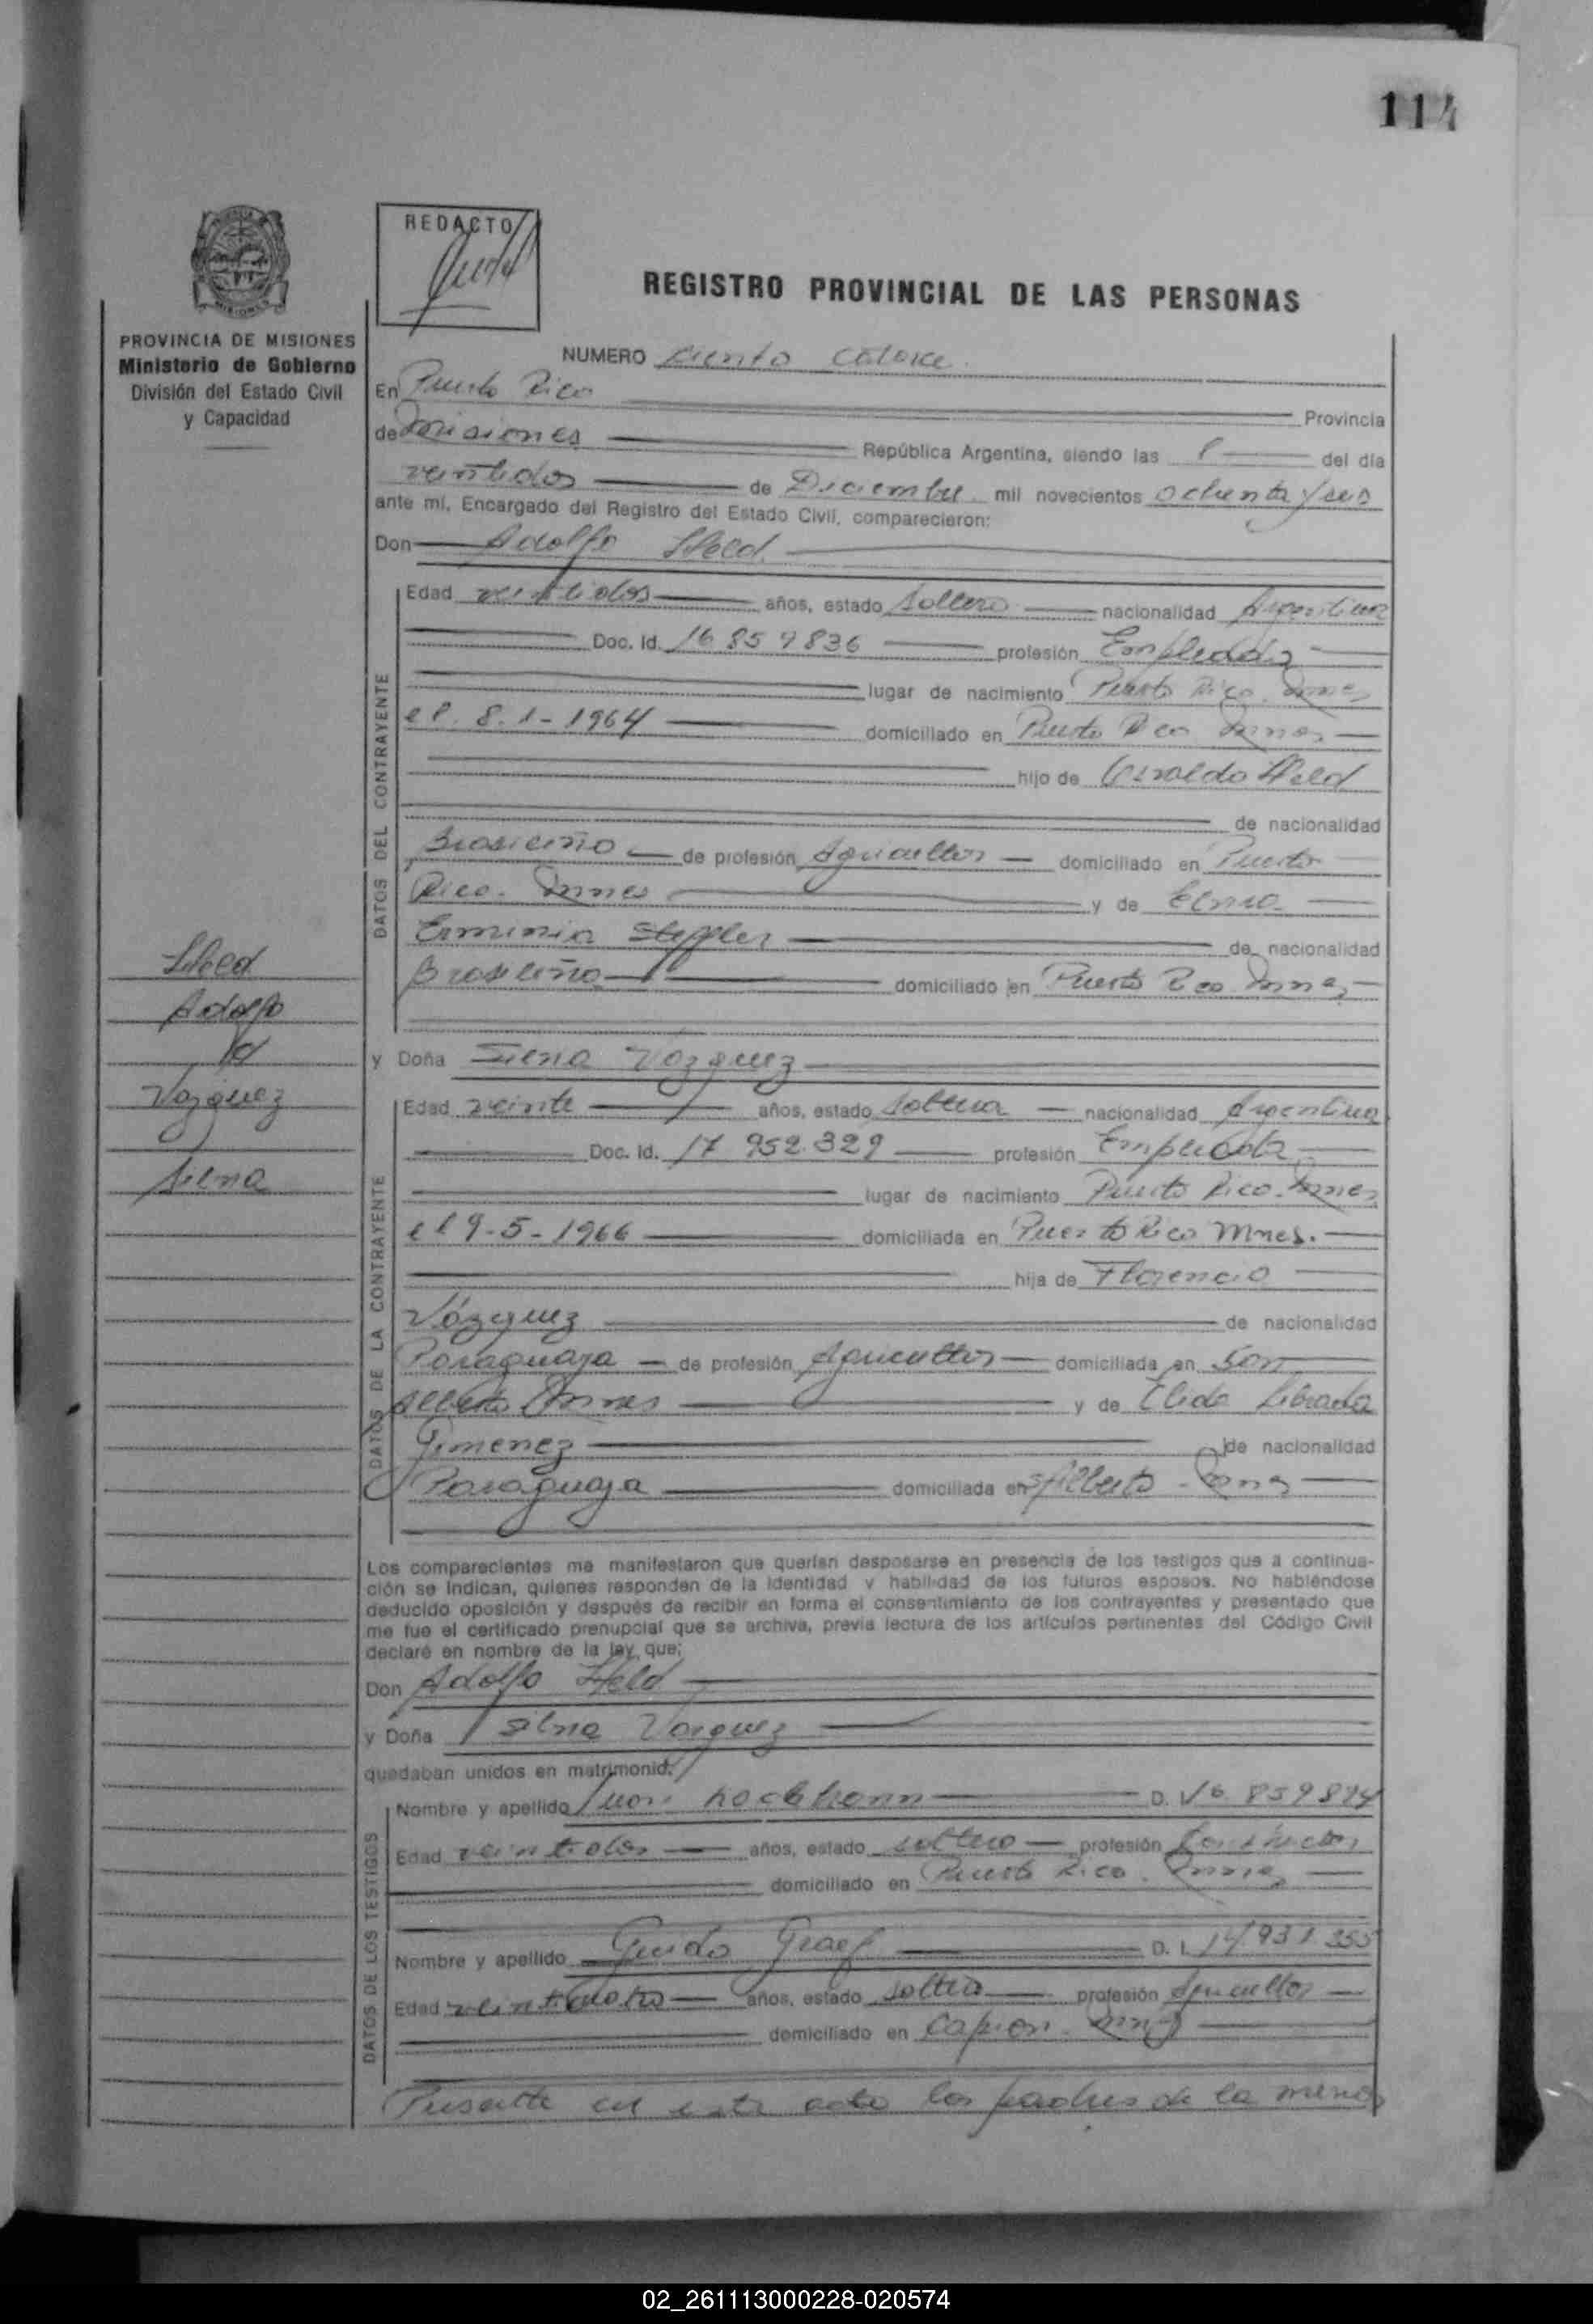 114
REDACTO
REGISTRO PROVINCIAL DE LAS PERSONAS
PROVINCIA DE MISIONES
Ministerio de Gobierno
División del Estado Civil
y Capacidad
NUMERO ciento catorce
En Puerto Rico Provincia
de Misiones República Argentina, siendo las del día
veintidos de Diciembre mil novecientos ochenta y seis
ante mí, Encargado del Registro del Estado Civil, comparecieron:
Don Adolfo Held
DATOS DEL CONTRAYENTE
Edad veintidos años, estado soltero nacionalidad Argentina
Doc. Id. 16 859836 profesión Empleado
lugar de nacimiento Puerto Rico. Mnes
el 8-1-1964 domiciliado en Puerto Rico Mnes
hijo de Osvaldo Held
de nacionalidad
Brasileño de profesión Agricultor domiciliado en Puerto
Rico. Mnes y de
Erminia Steffler de nacionalidad
Brasileña domiciliado en Puerto Rico Mnes
Held
Adolfo
c/
Vazquez
Silna
y Doña Silna Vazquez
DATOS DE LA CONTRAYENTE
Edad veinte años, estado soltera nacionalidad Argentina
Doc. Id. 17 952.329 profesión Empleada
lugar de nacimiento Puerto Rico. Mnes
el 9-5-1966 domiciliada en Puerto Rico Mnes.
hija de Florencio
Vázquez de nacionalidad
Paraguaya de profesión Agricultor domiciliada en San
Alberto Mnes y de Elida Librada
Gimenez de nacionalidad
Paraguaya domiciliada en S/Alberto - Mnes
Los comparecientes me manifestaron que querían desposarse en presencia de los testigos que a continua-
ción se indican, quienes responden de la identidad y habilidad de los futuros esposos. No habiéndose
deducido oposición y después de recibir en forma el consentimiento de los contrayentes y presentado que
me fue el certificado prenupcial que se archiva, previa lectura de los artículos pertinentes del Código Civil
declaré en nombre de la ley, que;
Don Adolfo Held
y Doña Silna Vazquez
quedaban unidos en matrimonio.
DATOS DE LOS TESTIGOS
Nombre y apellido D. 16 859874
Edad veintidos años, estado soltero profesión
domiciliado en Puerto Rico. Mnes
Nombre y apellido Guido Graef D. I. 14 931 355
Edad veinticuatro años, estado soltero profesión Agricultor
domiciliado en Capiovi. Mnes
Presente en este acto los padres de la menor
02_261113000228-020574